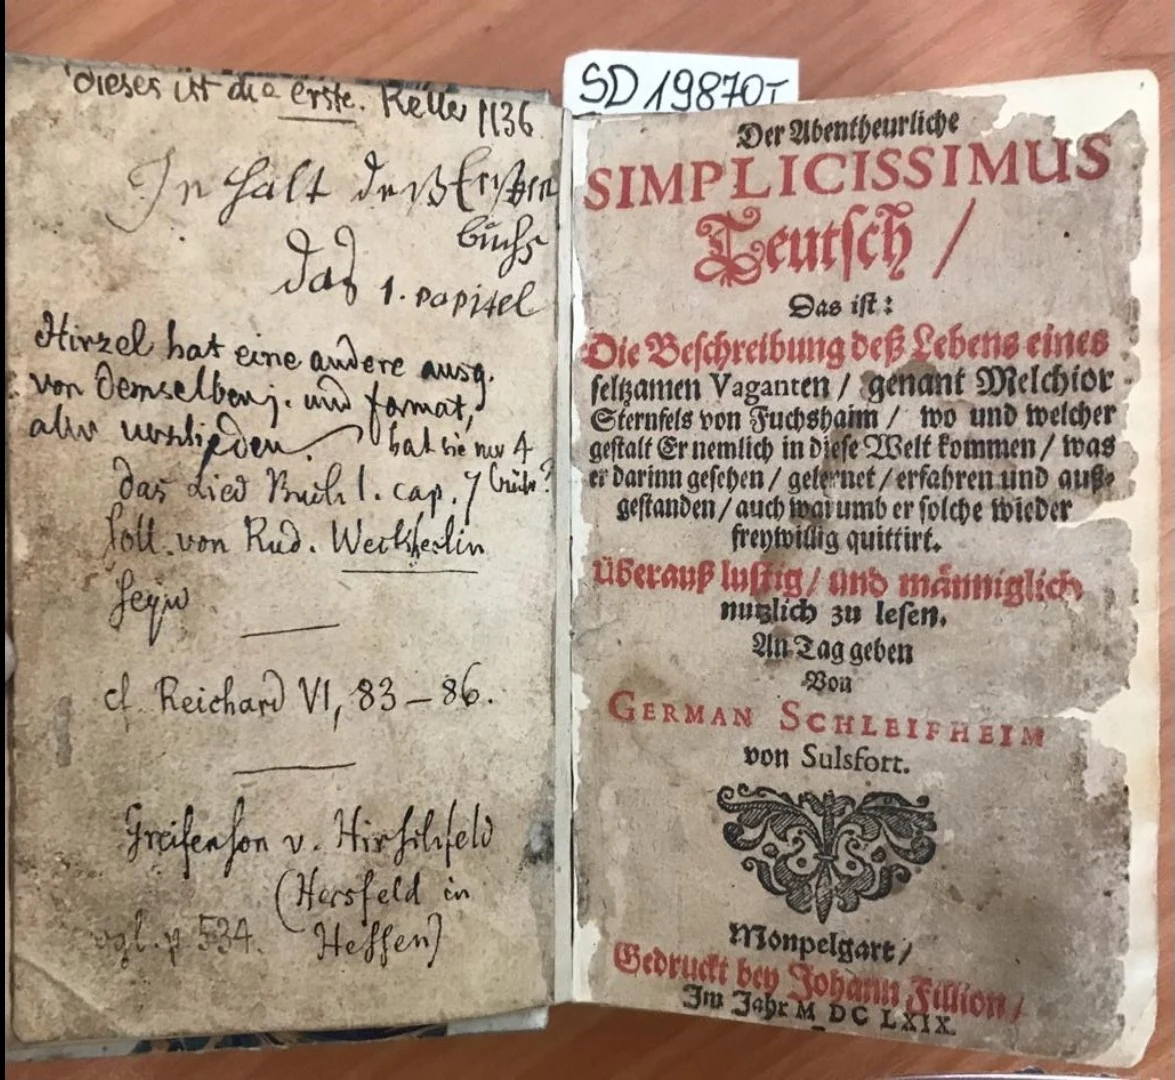 dieses ist die erste. Keller 1136
Inhalt deß Ersten
buchs
Das 1. capitel
Hirzel hat eine andere ausg.
von demselben j. und format,
aber
hat sie nur 4
das Lied Buch 1. cap. 7
soll von Rud. Weckherlin
seyn
cf. Reichard VI, 83–86.
Greifenson v. Hirschfeld
(Hersfeld in
Hessen)
vgl. p 534.
SD 19870
Der Abentheurliche
SIMPLICISSIMUS
Teutsch /
Das ist:
Die Beschreibung deß Lebens eines
seltzamen Vaganten / genant Melchior
Sternfels von Fuchshaim / wo und welcher
gestalt Er nemlich in diese Welt kommen / was
er darinn gesehen / gelernet / erfahren und auß-
gestanden / auch warumb er solche wieder
freywillig quittirt.
Überauß lustig / und männiglich
nutzlich zu lesen.
An Tag geben
Von
GERMAN SCHLEIFHEIM
von Sulsfort.
Monpelgart /
Gedruckt bey Johann Fillion /
Im Jahr M DC LXIX.